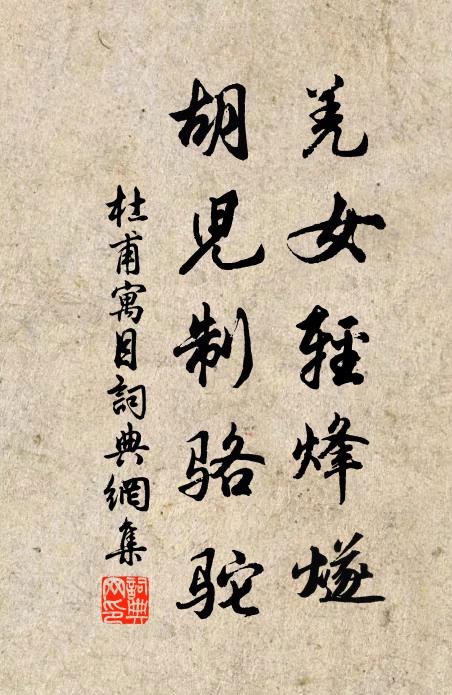 羌女輕烽燧
胡兒制骆駝
杜甫寓目詞典網集
詞典網印